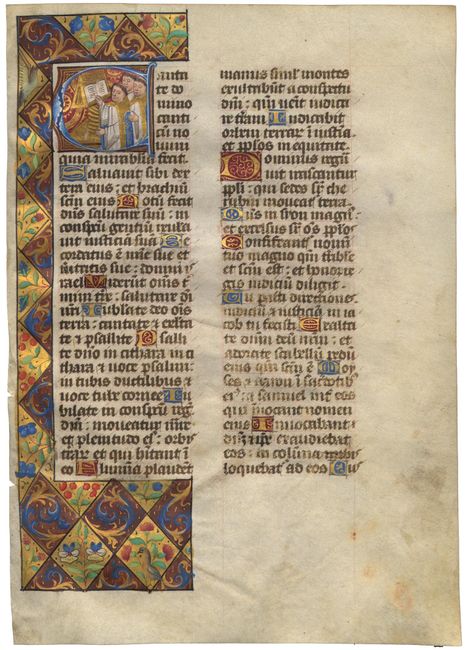 Canta
te do
mino
canti
cū no
quia mirabilia fecit.
Saluauit sibi dex
tera eius: et brachiū
scm̄ eius Notū fecit
dn̄s salutare suū: in
conspū gentiū reuela
uit iusticiā suā Re
cordatus ē mīe sue et
ueritatis sue: domui is
rael Viderūt om̄s t̄
mini tr̄e: salutare di
nr̄i Iubilate deo oīs
terra: cantate et exulta
te et psallite Psalli
te dn̄o in cithara in ci
thara et uoce psalmi:
in tubis ductilibus et
uoce tube cornee Iu
bilate in conspū reḡ
dn̄i: moueatur mare
et plenitudo ei⁹: orbis
terrar et qui habitant ī
eo Flumina plaudent
manus simĺ montes
exultabūt a conspectu
dn̄i: qm̄ uenit iudica
re terrā Iudicabit
orbem terrar̄ ī iusticia:
et pplōs in equitate
Dominus regna
uit irascantur
ppli: qui sedes suꝑ che
rubin moueat̄ terra
Dn̄s in sion magn⁹:
et excelsus suꝑ oēs pplōs
Confiteant̄ nomini
tuo magno qm̄ t̄ribile
et scm̄ est: et honor re
gis iudiciū diligit
Tu parasti directiones
iudiciū et iusticiā in ia
cob tu fecisti Exalta
te dn̄m deū nr̄m: et
adorate scabellū pedū
eius qm̄ scm̄ ē Moy
ses et aaron ī sacerdotib⁹
ei⁹: et samuel inṭ eos
qui inuocant nomen
eius Inuocabant
dn̄m et ipse exaudiebat
eos: in colūna nubis
loquebat̄ ad eos Cus